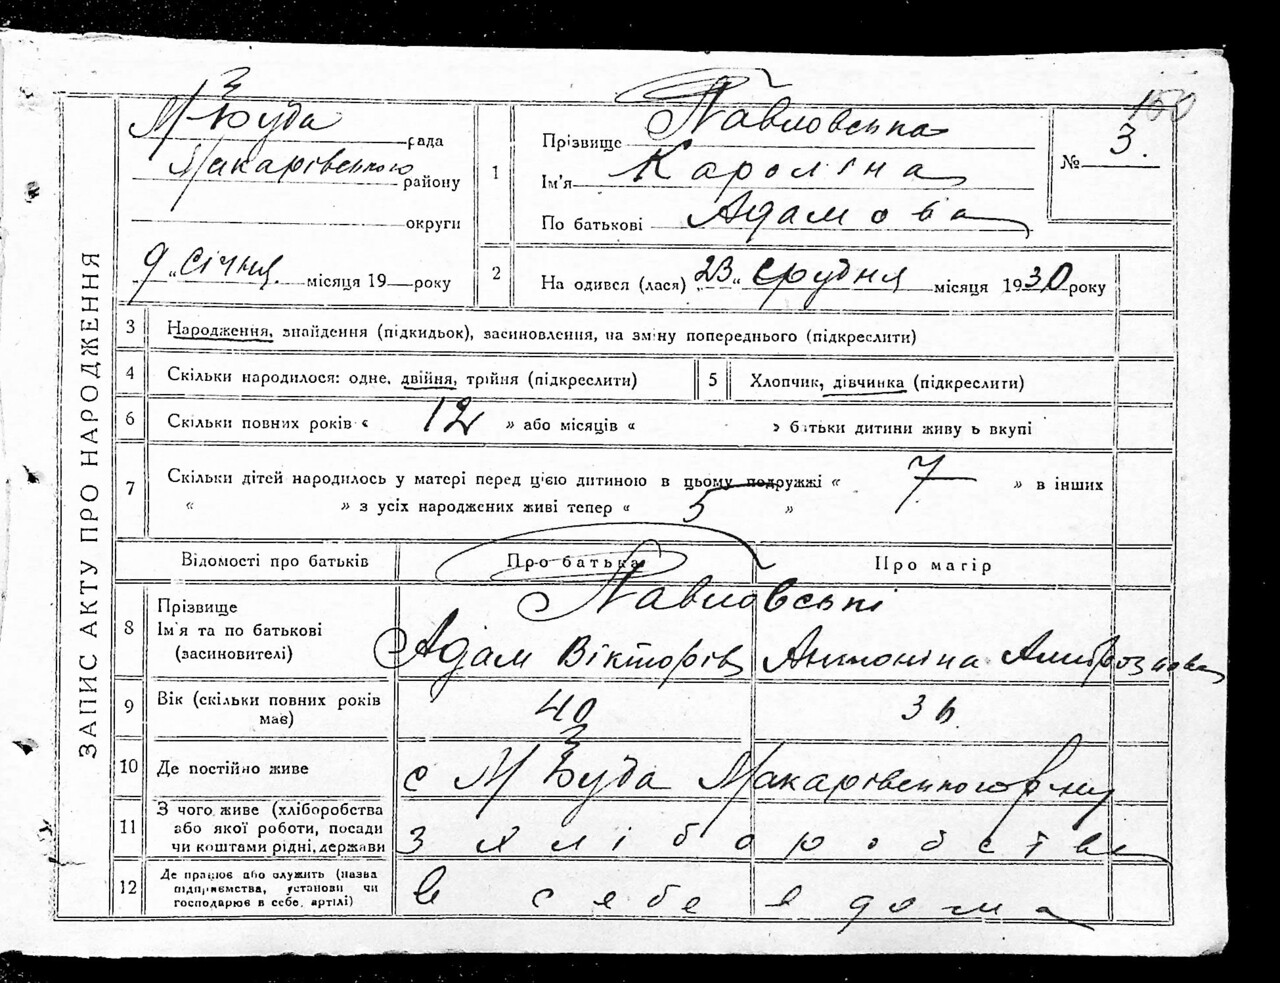 150
ЗАПИС АКТУ ПРО НАРОДЖЕННЯ
М-Буда рада
Макарівського району
округи
9 „ січня місяця 19 року
1
Прізвище Павловська
Ім'я Кароліна
По батькові Адамова
№ 3.
2 На одився (лася) „23„ грудня місяця 1930 року
3 Народження, знайдення (підкидьок), засиновлення, на зміну попереднього (підкреслити)
4 Скільки народилося: одне, двійня, трійня (підкреслити)
5 Хлопчик, дівчинка (підкреслити)
6 Скільки повних років « 12 » або місяців « » батьки дитини живуть вкупі
7 Скільки дітей народилось у матері перед цією дитиною в цьому подружжі « 7 » в інших
« » з усіх народжених живі тепер « 5 »
Відомості про батьків Про батька Про матір
8 Прізвище
Ім'я та по батькові
(засиновителі)
Павловські
Адам Вікторів Антоніна Амброзова
9 Вік (скільки повних років має) 40 36
10 Де постійно живе с М Буда Макарівського р-ну
11 З чого живе (хліборобства
або якої роботи, посади
чи коштами рідні, держави
З хліборобства
12 Де працює або служить (назва
підприємства, установи чи
господарює в себе, артілі)
в себе дома